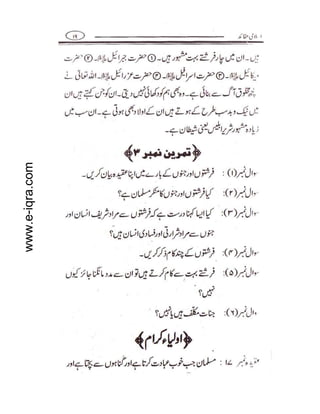 ۱۶
ہیں۔ ان میں چار فرشتے بہت مشہور ہیں۔ (۱) حضرت جبرائیل علیہ السلام (۲) حضرت
میکائیل علیہ السلام (۳) حضرت اسرافیل علیہ السلام (۴) حضرت عزرائیل علیہ السلام۔ اللہ تعالیٰ نے
کچھ مخلوق آگ سے بنائی ہے۔ وہ بھی ہم کو دکھائی نہیں دیتی۔ ان کو جن کہتے ہیں ان
میں نیک و بد سب طرح کے ہوتے ہیں ان کے اولاد بھی ہوتی ہے۔ ان سب میں
زیادہ مشہور شریر ابلیس یعنی شیطان ہے۔
﴿تمرین نمبر ۳﴾
سوال نمبر (۱): فرشتوں اور جنوں کے بارے میں اپنا عقیدہ بیان کریں۔
سوال نمبر (۲): کیا فرشتوں اور جنوں کا منکر مسلمان ہے؟
سوال نمبر (۳): کیا ایسا کہنا درست ہے کہ فرشتوں سے مراد شریف انسان اور
جنوں سے مراد شرارتی اور فسادی انسان ہیں؟
سوال نمبر (۴): فرشتوں کے چند کام ذکر کریں۔
سوال نمبر (۵): فرشتے بہت سے کام کرتے ہیں تو ان سے مدد مانگنا جائز کیوں
نہیں؟
سوال نمبر (۶): جنات مکلف ہیں یا نہیں؟
﴿اولیاء کرام﴾
عقیدہ نمبر ۱۷: مسلمان جب خوب عبادت کرتا ہے اور گناہوں سے بچتا ہے اور
www.e-iqra.com